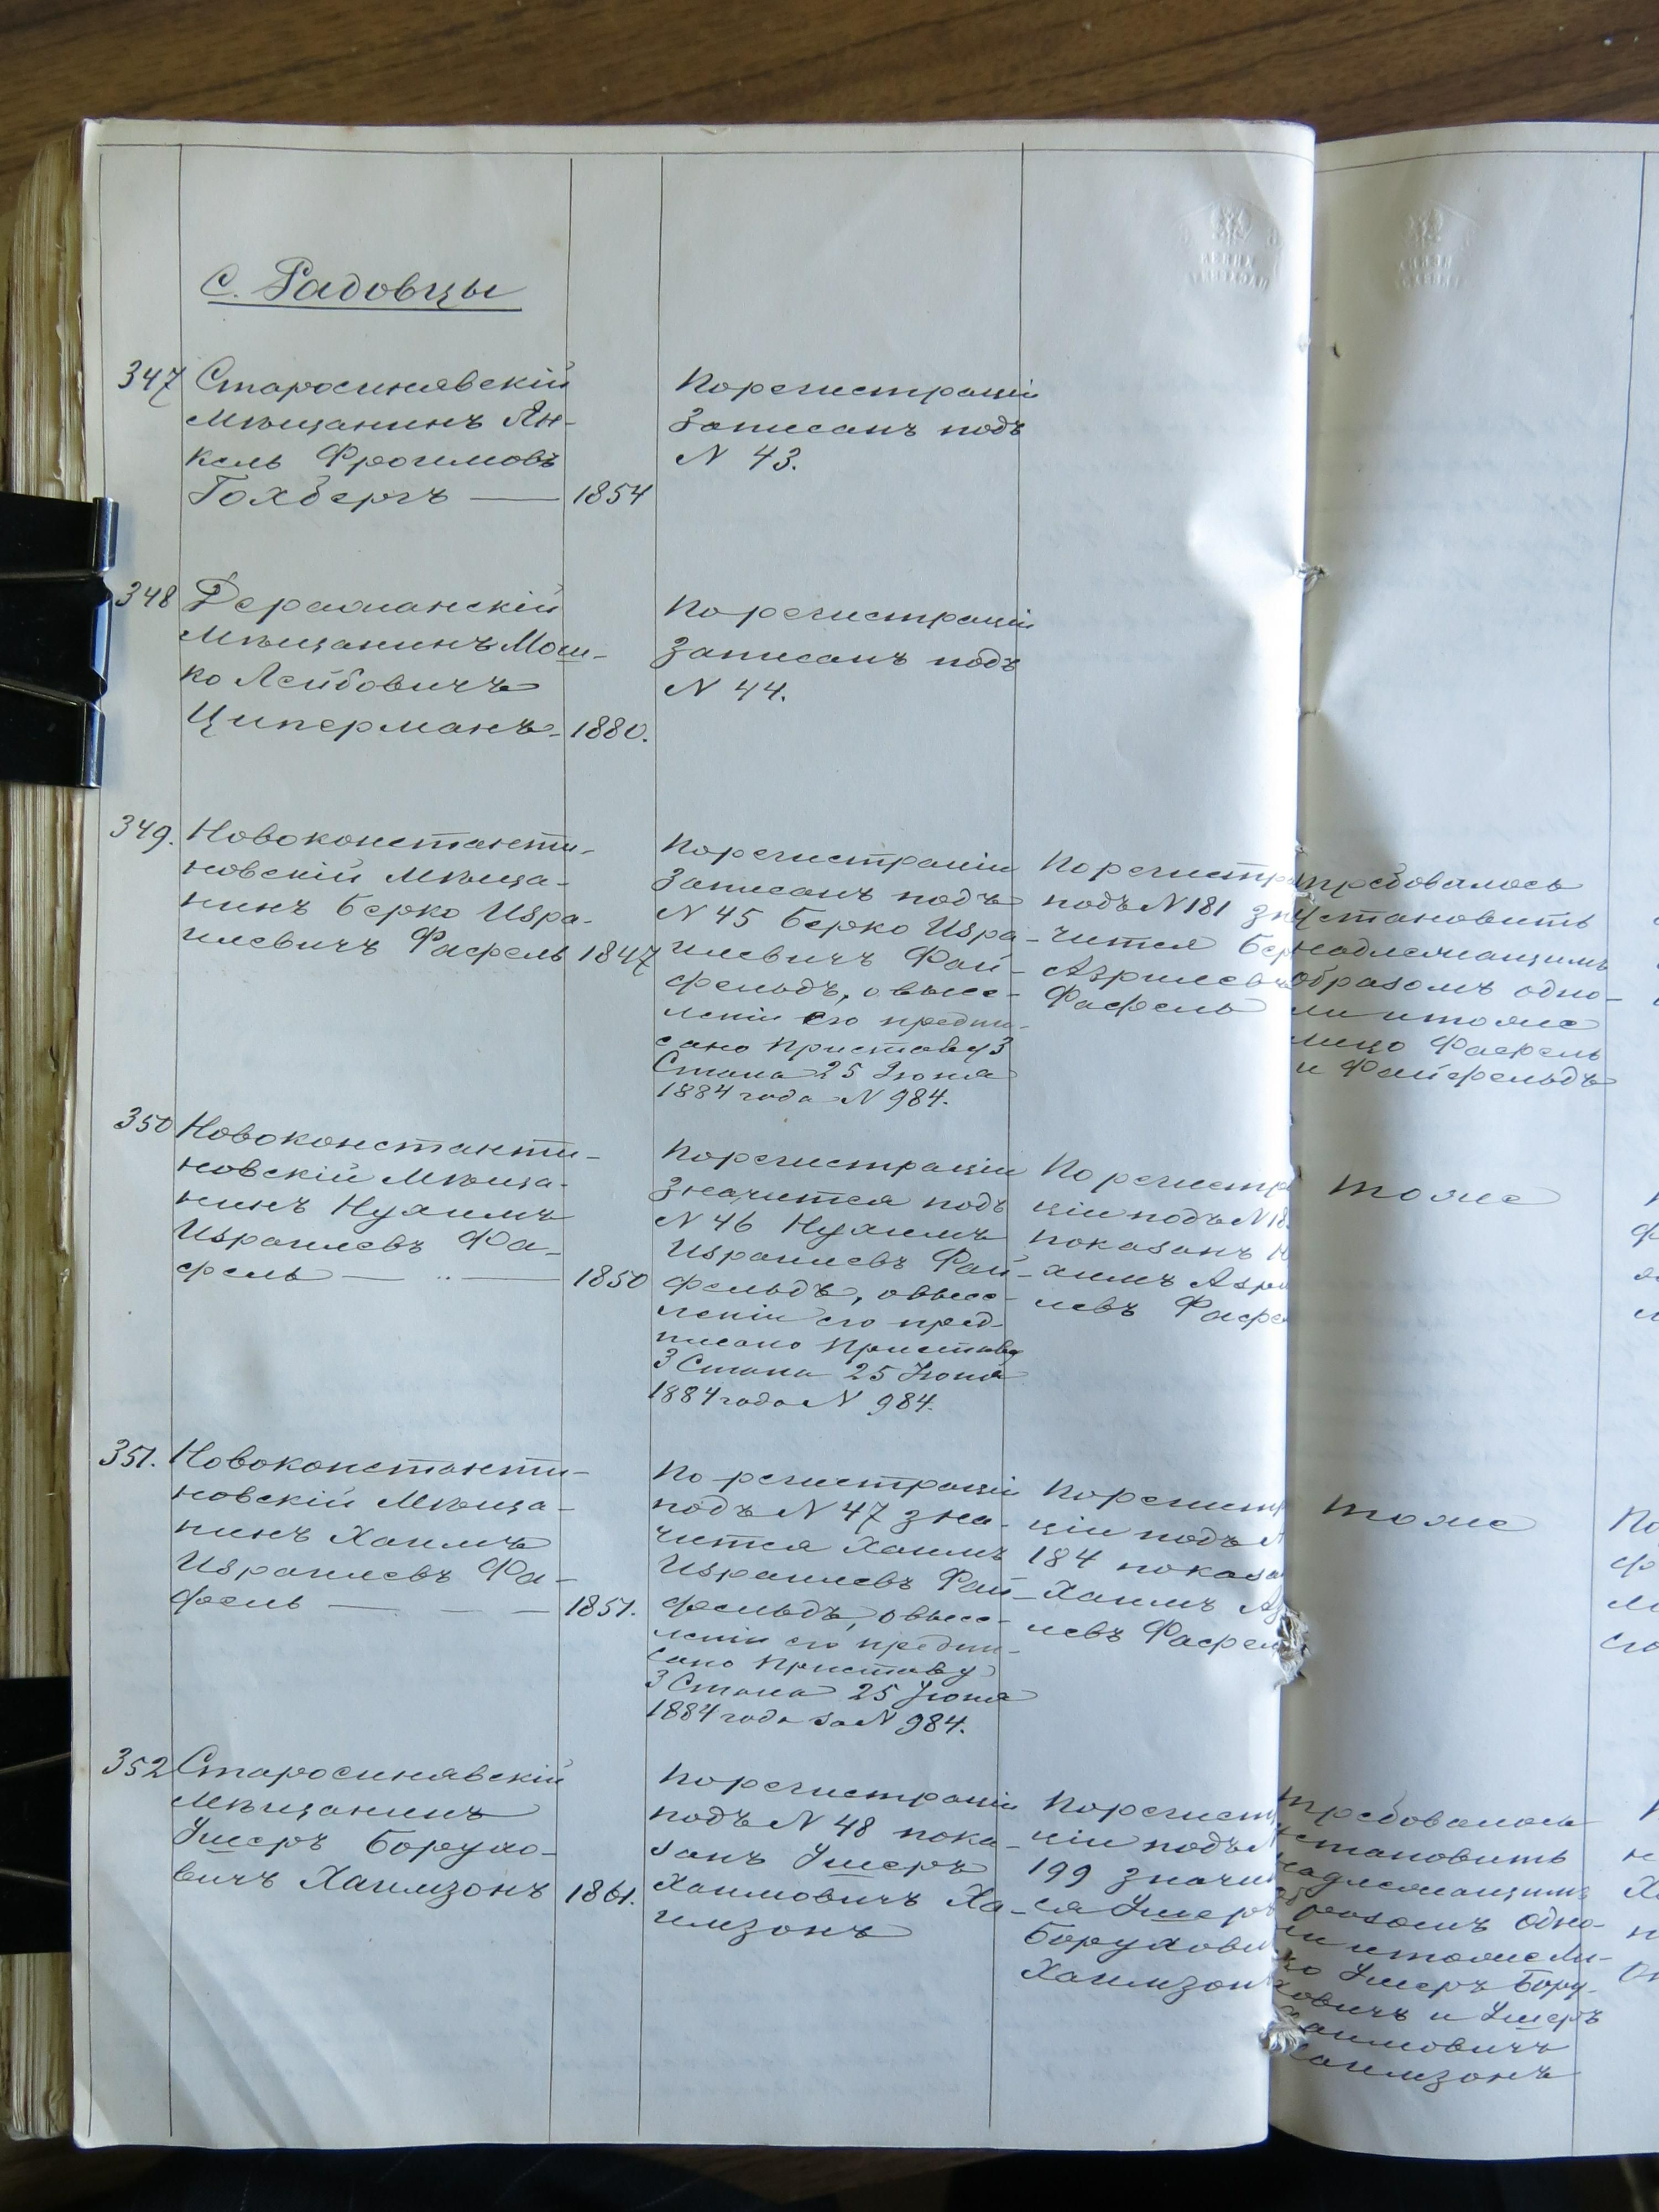 с. Радовцы
347 Старосинявскій
мѣщанинъ Ян-
кель Фроимовъ
Гохбергъ — 1854
По регистраціи
записанъ подъ
N 43.
348 Деражнянскій
мѣщанинъ Мош-
ко Лейбовичъ
Циперманъ - 1880.
По регистраціи
записанъ подъ
N 44.
349. Новоконстанти-
новскій мѣща-
нинъ Берко Изра-
илевичъ Фафель 1847
По регистраціи
записанъ подъ
N 45 Берко Изра-
илевичъ Фай-
фельдъ, о высе-
леніи его предпи-
сано Приставу 3
Стана 25 Іюня
1884 года N 984.
По регистра
подъ N 181 зн
чится Бер
Азрилев
Фафель
требовалось
установить
надлежащимъ
образомъ одно-
ли и тоже
лицо Фафель
и Файфельдъ
350 Новоконстанти-
новскій мѣща-
нинъ Нухимъ
Израилевъ Фа-
фель — .. — 1850
По регистраціи
значится подъ
N 46 Нухимъ
Израилевъ Фай-
фельдъ, о высе-
леніи его пред-
писано Приставу
3 Стана 25 Іюня
1884 года N 984.
По регистр
ціи подъ N 18
показанъ Н
химъ Азри
левъ Фафе
тоже
351. Новоконстанти-
новскій мѣща-
нинъ Хаимъ
Израилевъ Фа-
фель — — — 1851.
По регистраціи
подъ N 47 зна-
чится Хаимъ
Израилевъ Фай-
фельдъ, о высе-
леніи его предпи-
сано Приставу
3 Стана 25 Іюня
1884 года за N 984.
По регистр
ціи подъ N
184 показа
Хаимъ Аз
левъ Фафел
тоже
352 Старосинявскій
мѣщанинъ
Ушеръ Борухо-
вичъ Хаимзонъ 1861.
По регистраціи
подъ N 48 пока-
занъ Ушеръ
Хаимовичъ Ха-
имзонъ
По регист
ціи подъ N
199 значит
ся Ушеръ
Борухови
Хаимзон
требовалось
установить
надлежащимъ
образомъ одно-
ли и тоже ли-
цо Ушеръ Бору-
ховичъ и Ушеръ
Хаимовичъ
Хаимзонъ